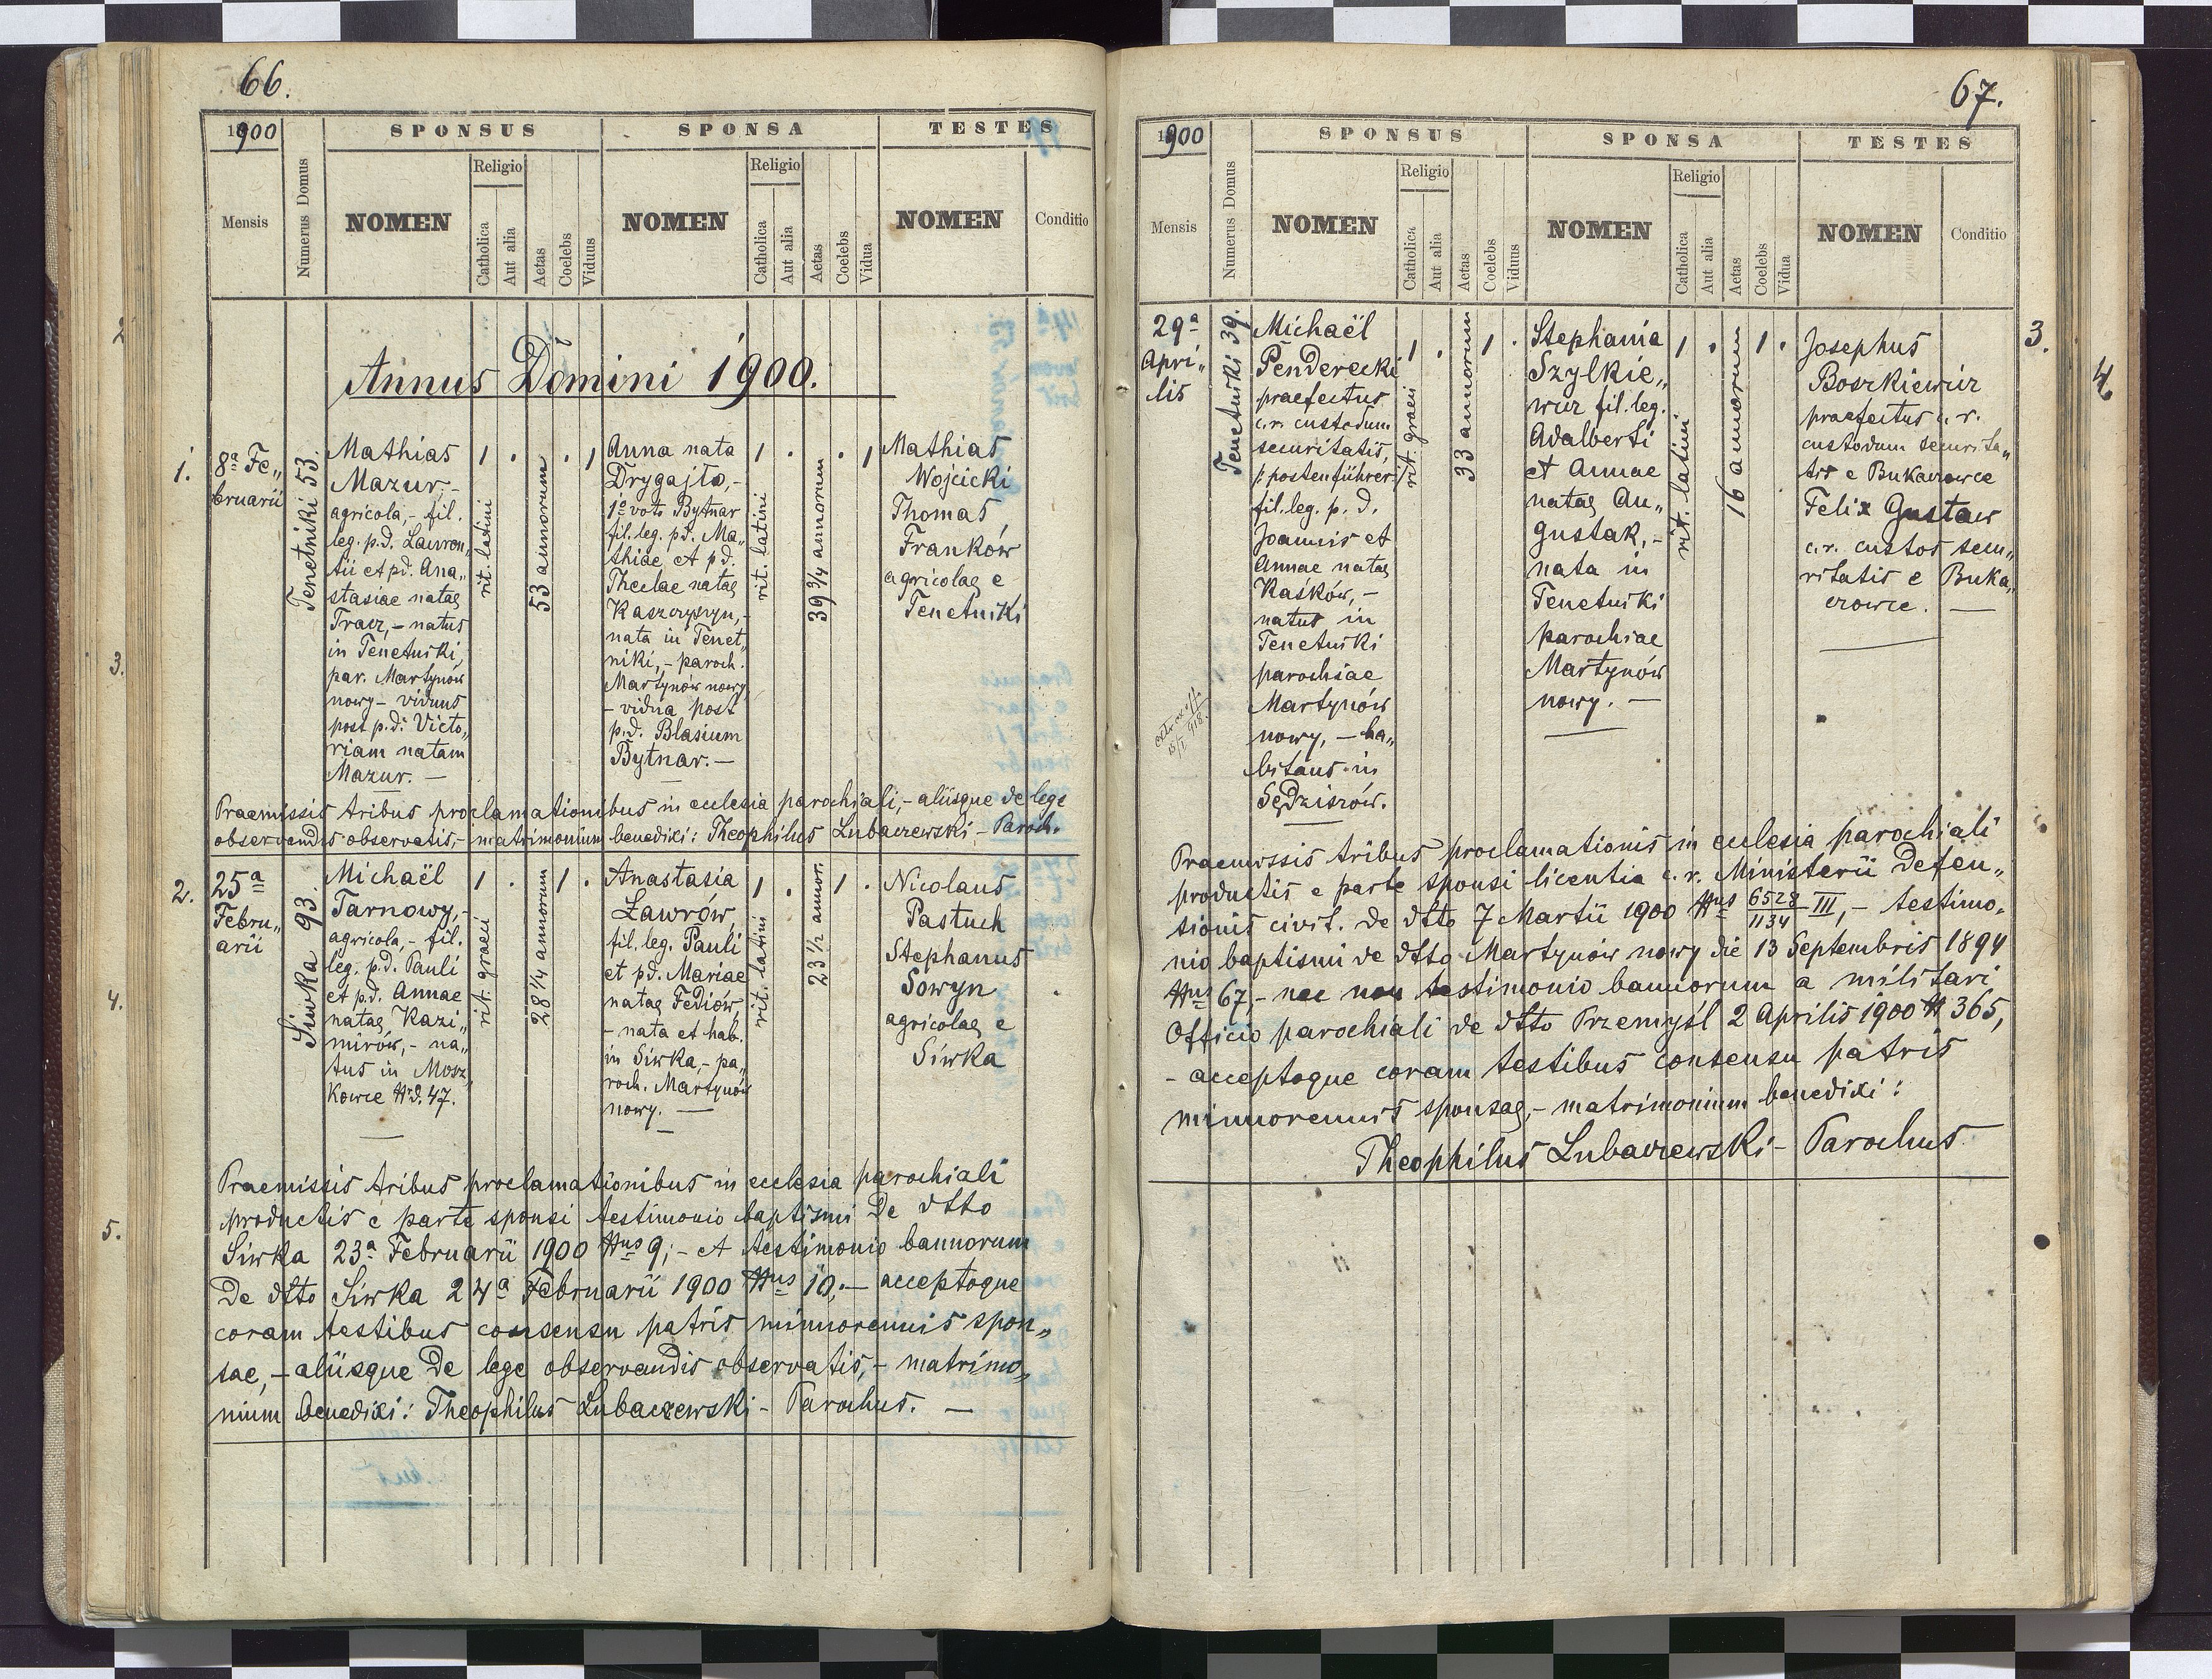 66.
1900
SPONSUS
SPONSA
TESTES
Mensis
Numerus Domus
NOMEN
Religio
Catholica
Aut alia
Aetas
Coelebs
Viduus
NOMEN
Religio
Catholica
Aut alia
Aetas
Coelebs
Vidua
NOMEN
Conditio
Annus Domini 1900.
1.
8ª Fe„
bruarii
Tenetniki 53.
Mathias
Mazur,-
agricola,- fil.
leg. p.d. Lauren„
tii et pd. Ana„
stasiae natae
Tracz,- natus
in Tenetniki,
par. Martynów
nowy- viduus
post p.d. Victo„
riam natam
Mazur. —
1 .
rit. latini
53 annorum
. 1
Anna nata
Drygajło,-
1º voto Bytnar
fil. leg. pd. Ma„
thiae et pd.
Theclae natae
nata in Tenet„
niki,- paroch.
Martynów nowy
- vidua post
p.d. Blasium
Bytnar.—
1 .
rit. latini
39 3/4 annorum
. 1
Mathias
Wojcicki
Thomas
Franków
agricolae e
Tenetniki
Praemissis tribus proclamationibus in ecclesia parochiali,- aliisque de lege
observandis observatis,- matrimonium benedixi: Theophilus Lubaczewski - Paroch.
2.
25ª
Febru„
arii
Siwka 93.
Michaël
Tarnowy,-
agricola,- fil.
leg. p.d. Pauli
et p.d. Annae
natae Kazi„
mirów,- na„
tus in Mosz„
kowce Nr d. 47.
1 .
rit. graeci
28 1/4 annorum
1 .
Anastasia
Ławrów,
fil. leg. Pauli
et pd. Mariae
natae Fediów,
- nata et hab.
in Siwka,- pa„
roch. Martynów
nowy. —
1 .
rit. latini
23 1/2 annor.
1 .
Nicolaus
Pastuch
Stephanus
Sowyn
agricolae e
Siwka
Praemissis tribus proclamationibus in ecclesia parochiali
productis e parte sponsi testimonio baptismi de dtto
Siwka 23ª Februarii 1900 Nus 9,- et testimonio bannorum
de dtto Siwka 24ª Februarii 1900 Nus 10,— acceptoque
coram testibus consensu patris minorennis spon„
sae,- aliisque de lege observandis observatis,- matrimo„
nium benedixi: Theophilus Lubaczewski - Parochus. —
67.
1900
SPONSUS
SPONSA
TESTES
Mensis
Numerus Domus
NOMEN
Religio
Catholica
Aut alia
Aetas
Coelebs
Viduus
NOMEN
Religio
Catholica
Aut alia
Aetas
Coelebs
Vidua
NOMEN
Conditio
3.
29ª
Apri„
lis
Tenetniki 39.
Michaël
Penderecki
praefectus
c.r. custodum
securitatis,
/: postenführer
fil. leg. p. d.
Joannis et
Annae natae
Kaśków,-
natus in
Tenetniki
parochiae
Martynów
nowy,- ha„
bitans in
Sędziszów.
1 .
rit. graeci
33 annorum
1 .
Stephania
Szylkie„
wicz fil. leg.
Adalberti
et Annae
natae Au„
gustak,-
nata in
Tenetniki
parochiae
Martynów
nowy. —
1 .
rit. latini
16 annorum
1 .
Josephus
Boszkiewicz
praefectus c. r.
custodum securita„
tis e Bukaczowce
Felix Gustaw
c.r. custos secu„
ritatis e Buka„
czowce. —
15/I 918.
Praemissis tribus proclamationis in ecclesia parochiali
productis e parte sponsi licentia c. r. Ministerii defen„
sionis civit. de dtto 7 Martii 1900 Nus 6528/1134 III,- testimo„
nio baptismi de dtto Martynów nowy die 13 Septembris 1894
Nus 67,- nec non testimonio bannorum a militari
Officio parochiali de dtto Przemyśl 2 Aprilis 1900 N 365,
- acceptoque coram testibus consensu patris
minorennis sponsae,- matrimonium benedixi:
Theophilus Lubaczewski - Parochus
2
3.
4.
5.
4